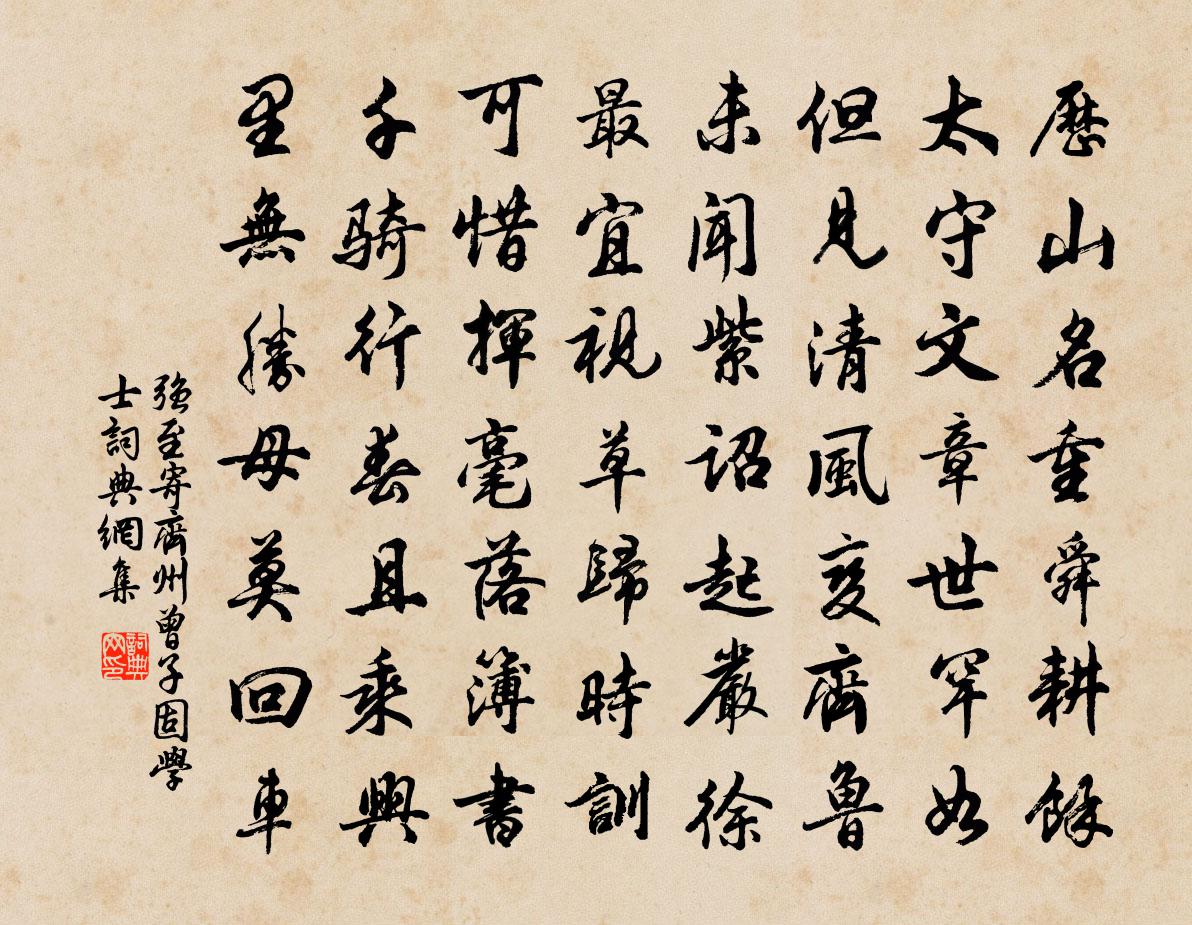 歷山名重舜耕餘
太守文章世罕如
但見清風變齊魯
未聞紫詔起嚴徐
最宜視草歸時訓
可惜揮毫落簿書
千騎行春且乘興
里無勝母莫回車
強至寄齊州曾子固學
士詞典網集
詞典
网印